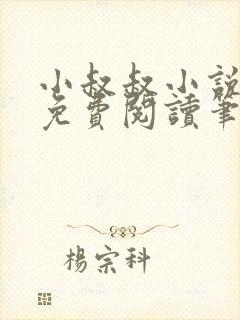 小叔叔小說
免費閱讀筆
楊宗科